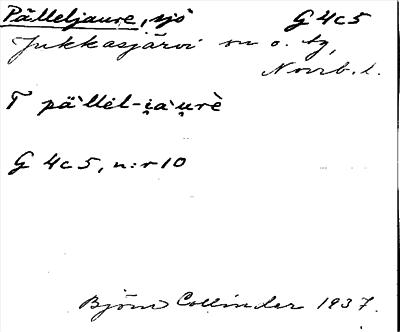 Pälleljaure, sjö G 4c5
Jukkasjärvi sn o. tg,
Norrb. l.
T pällel-i̯au̯rè
G 4c5, n:r 10
Björn Collinder 1937.